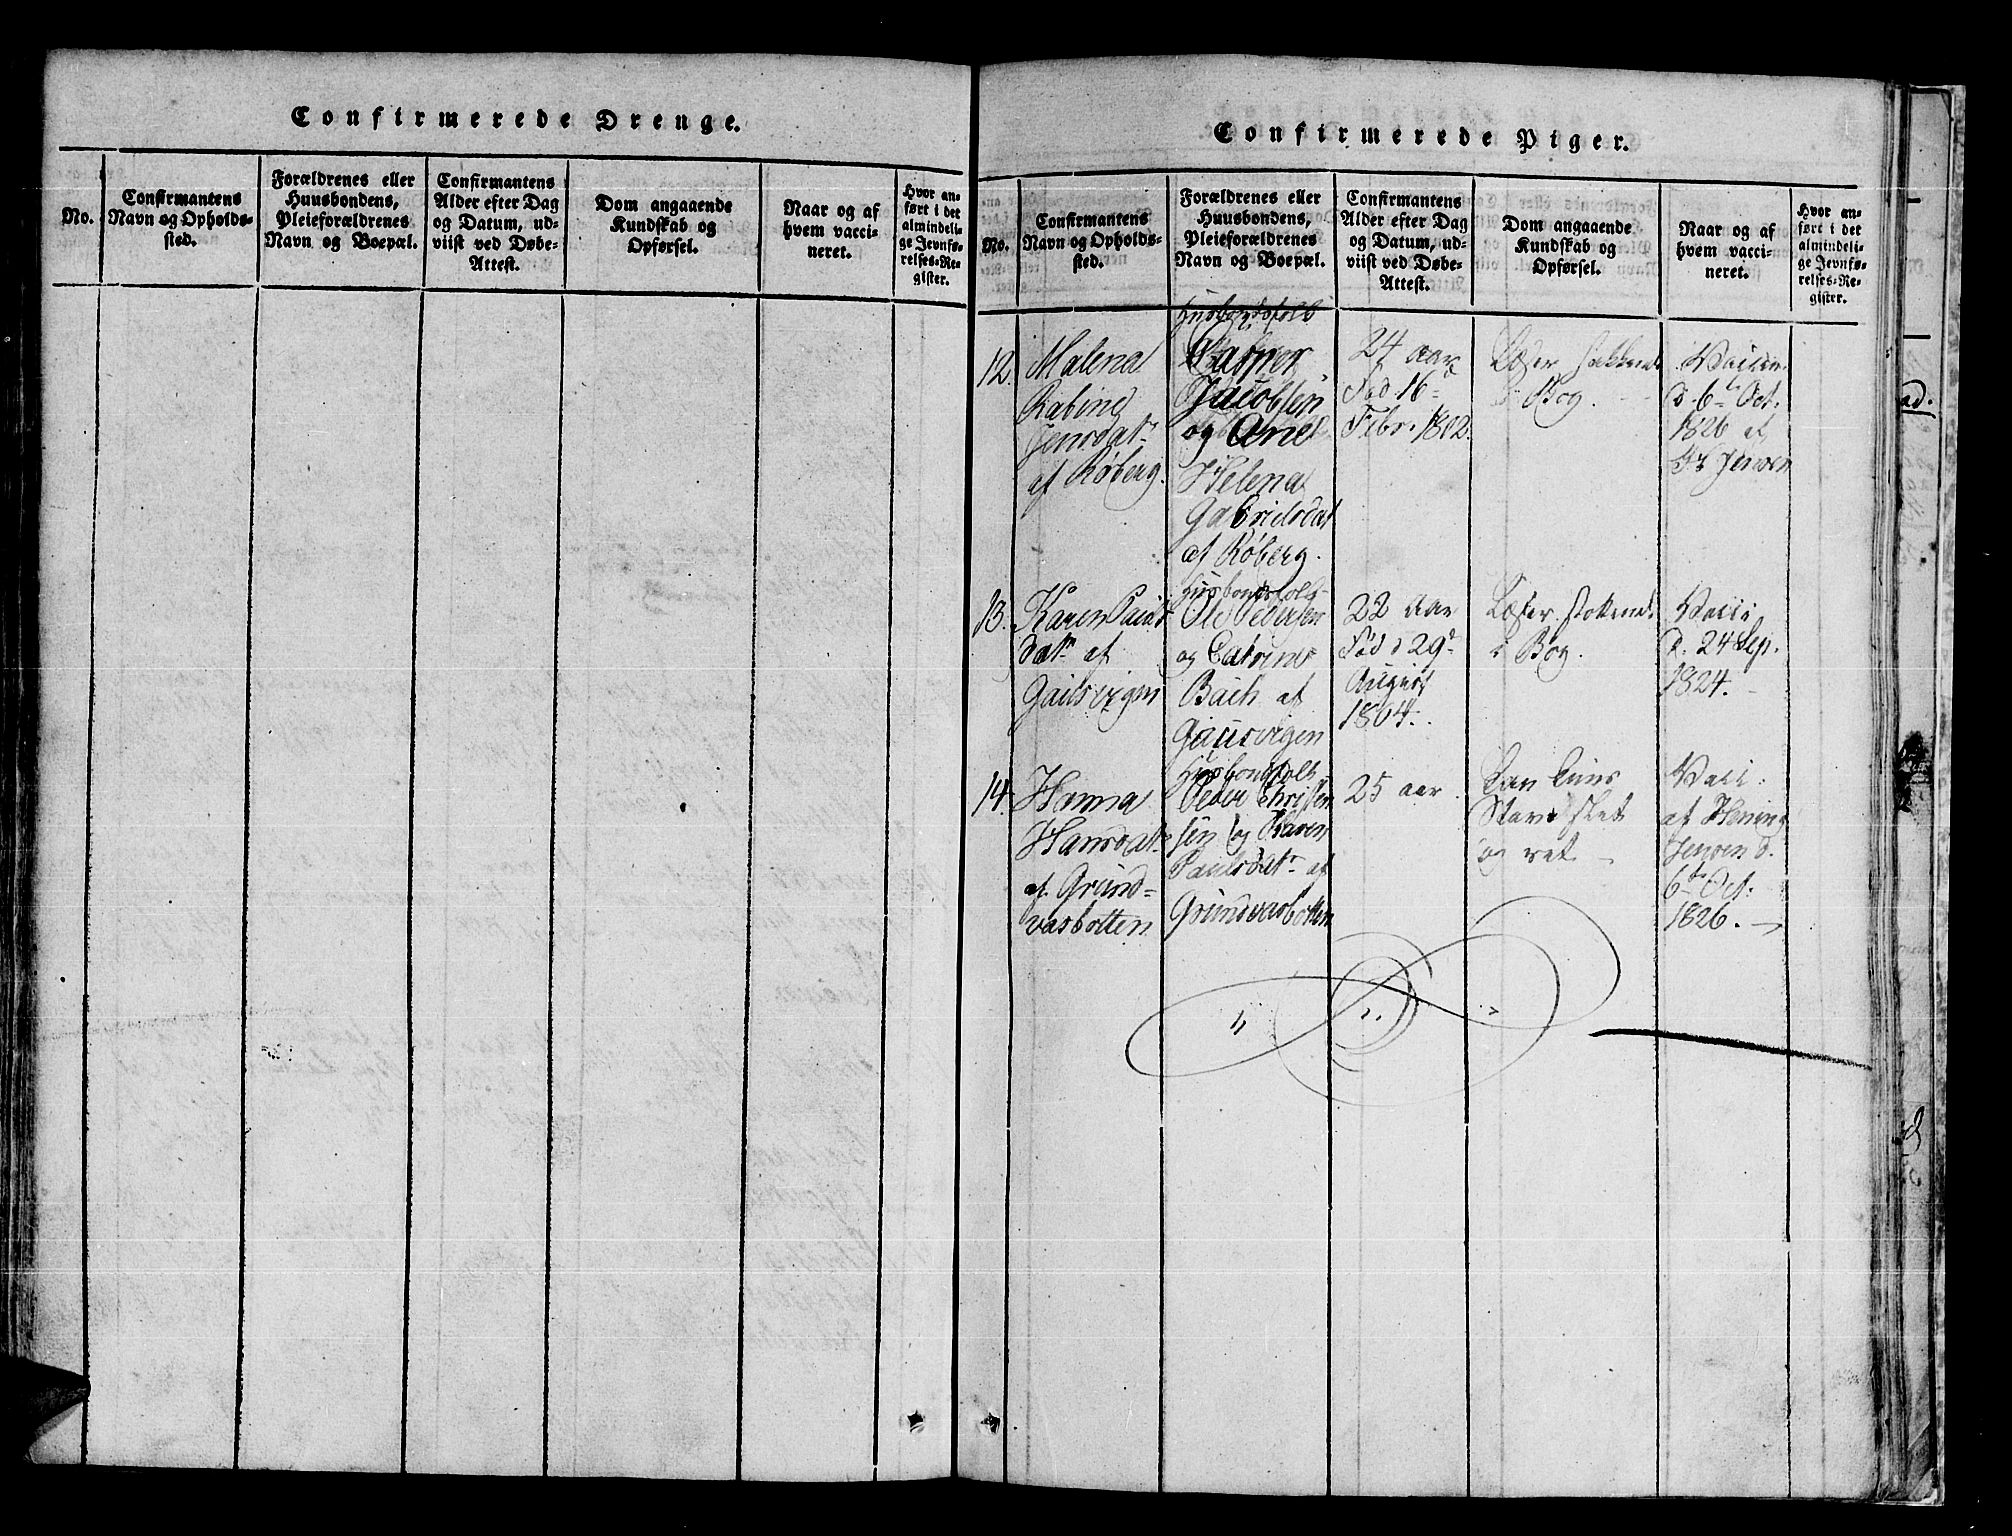 Confirmerede Drenge.
No.
Confirmantens
Navn og Opholds-
sted.
Forældrenes eller
Huusbondens,
Pleieforældrenes
Navn og Boepæl.
Confirmantens
Alder efter Dag
og Datum, ud-
viist ved Døbe-
Attest.
Dom angaaende
Kundskab og
Opførsel.
Naar og af
hvem vacci-
neret.
Hvor an-
ført i det
almindeli-
ge Jevnfø-
relses-Re-
gister.
Confirmerede Piger.
No.
Confirmantens
Navn og Opholds-
sted.
Forældrenes eller
Huusbondens,
Pleieforældrenes
Navn og Boepæl.
Confirmantens
Alder efter Dag
og Datum, ud-
viist ved Døbe-
Attest.
Dom angaaende
Kundskab og
Opførsel.
Naar og af
hvem vacci-
neret.
Hvor an-
ført i det
almindeli-
ge Jevnfø-
relses-Re-
gister.
12.
Malena
Rabine
Jensdatr
af Røberg.
Husbondsfolk
Jacobsen
og Ane
Helena
Gabrielsdat
af Røberg.
24 aar
Fød 16d
Febr. 1802.
Læser
i Bog.
Vaccin.
d. 6te Oct.
1826 af
Jensen
13.
Karen Pauls
datr af
Gausvigen
Husbondsfolk
Ole Pedersen
og Catrina
Bach af
Gausvigen
22 Aar
Fød d 29d
August
1804.
Læser stokende
i Bog.
Vacci
d. 24 Sep.
1824.
14.
Hanna
Hansdatr
af Grund-
vasbotten
Husbondfolk
Peder Christen
sen og Karen
Paulsdatr af
Grundvasbotten
25 aar
Kan kuns
Stave slet
og ret
Vacc.
af Hening
Jensen d.
6te Oct.
1826.